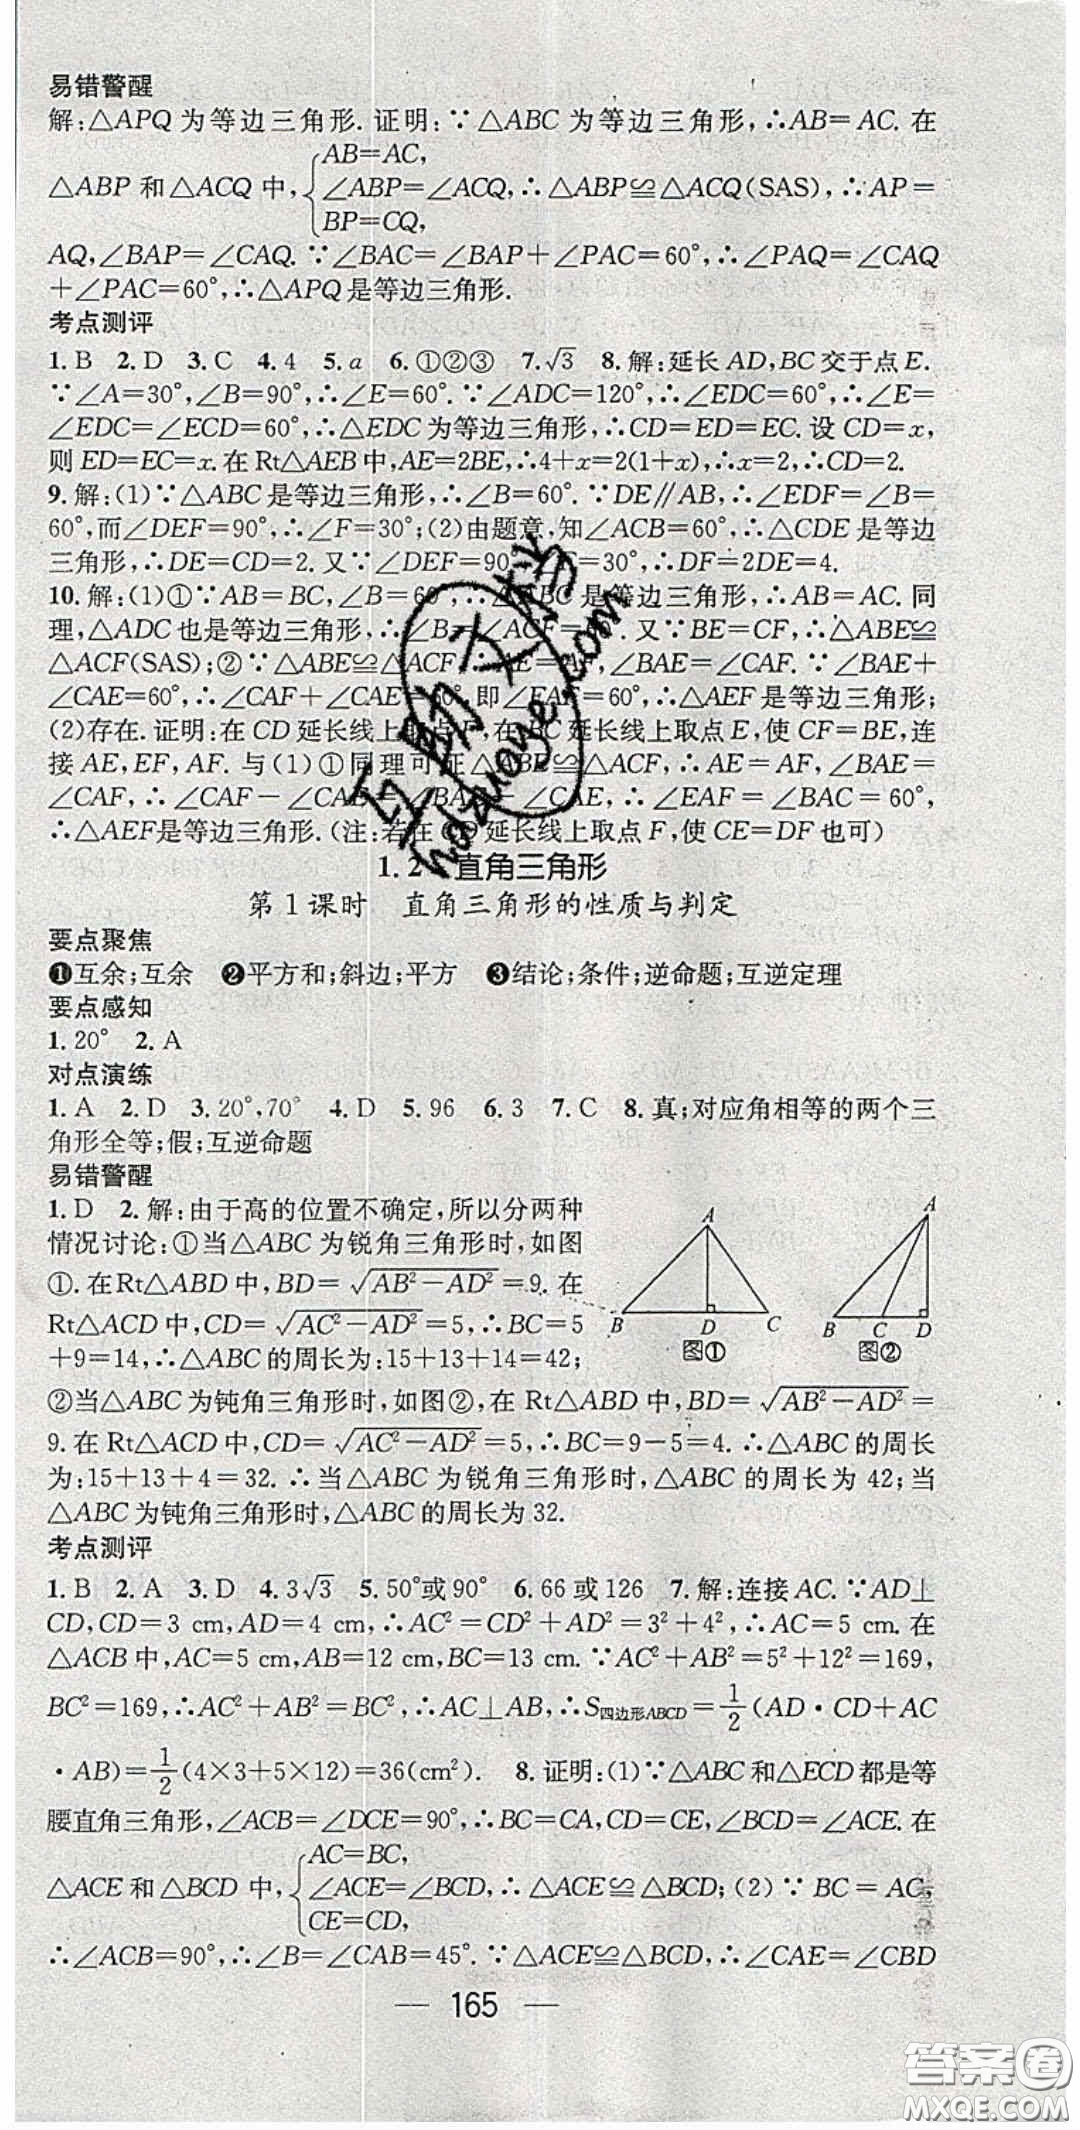 易错警醒
解:△APQ为等边三角形.证明:∵△ABC为等边三角形,∴AB=AC.在
△ABP和△ACQ中,{AB=AC, ∠ABP=∠ACQ, BP=CQ, ∴△ABP≌△ACQ(SAS),∴AP=
AQ,∠BAP=∠CAQ.∵∠BAC=∠BAP+∠PAC=60°,∴∠PAQ=∠CAQ
+∠PAC=60°,∴△APQ是等边三角形.
考点测评
1.B 2.D 3.C 4.4 5.a 6.①②③ 7.√3 8.解:延长AD,BC交于点E.
∵∠A=30°,∠B=90°,∴∠E=60°.∵∠ADC=120°,∴∠EDC=60°,∴∠E=
∠EDC=∠ECD=60°,∴△EDC为等边三角形,∴CD=ED=EC.设CD=x,
则ED=EC=x.在Rt△AEB中,AE=2BE,∴4+x=2(1+x),∴x=2,∴CD=2.
9.解:(1)∵△ABC是等边三角形,∴∠B=60°.∵DE∥AB,∴∠EDF=∠B=
60°,而∠DEF=90°,∴∠F=30°;(2)由题意,知∠ACB=60°,∴△CDE是等边
三角形,∴DE=CD=2.又∵∠DEF=90°,∠F=30°,∴DF=2DE=4.
10.解:(1)①∵AB=BC,∠B=60°,∴△ABC是等边三角形,∴AB=AC.同
理,△ADC也是等边三角形,∴∠B=∠ACF=60°.又∵BE=CF,∴△ABE≌
△ACF(SAS);②∵△ABE≌△ACF,∴AE=AF,∠BAE=∠CAF.∵∠BAE+
∠CAE=60°,∴∠CAF+∠CAE=60°,即∠EAF=60°,∴△AEF是等边三角形;
(2)存在.证明:在CD延长线上取点F,在BC延长线上取点E,使CF=BE,连
接AE,EF,AF.与(1)①同理可证△ABE≌△ACF,∴AE=AF,∠BAE=
∠CAF,∴∠CAF-∠CAE=∠BAE-∠CAE,∴∠EAF=∠BAC=60°,
∴△AEF是等边三角形.(注:若在CD延长线上取点F,使CE=DF也可)
1.2 直角三角形
第1课时 直角三角形的性质与判定
要点聚焦
❶互余;互余 ❷平方和;斜边;平方 ❸结论;条件;逆命题;互逆定理
要点感知
1.20° 2.A
对点演练
1.A 2.D 3.20°,70° 4.D 5.96 6.3 7.C 8.真;对应角相等的两个三
角形全等;假;互逆命题
易错警醒
1.D 2.解:由于高的位置不确定,所以分两种
情况讨论:①当△ABC为锐角三角形时,如图
①.在Rt△ABD中,BD=√(AB²-AD²)=9.在
Rt△ACD中,CD=√(AC²-AD²)=5,∴BC=5
+9=14,∴△ABC的周长为:15+13+14=42;
A
B D C
图①
A
B C D
图②
②当△ABC为钝角三角形时,如图②,在Rt△ABD中,BD=√(AB²-AD²)=
9.在Rt△ACD中,CD=√(AC²-AD²)=5,∴BC=9-5=4.∴△ABC的周长
为:15+13+4=32.∴当△ABC为锐角三角形时,△ABC的周长为42;当
△ABC为钝角三角形时,△ABC的周长为32.
考点测评
1.B 2.A 3.D 4.3√3 5.50°或90° 6.66或126 7.解:连接AC.∵AD⊥
CD,CD=3 cm,AD=4 cm,∴AC²=CD²+AD²=3²+4²,∴AC=5 cm.在
△ACB中,AC=5 cm,AB=12 cm,BC=13 cm.∵AC²+AB²=5²+12²=169,
BC²=169,∴AC²+AB²=BC²,∴AC⊥AB,∴S四边形ABCD=1/2(AD·CD+AC
·AB)=1/2(4×3+5×12)=36(cm²). 8.证明:(1)∵△ABC和△ECD都是等
腰直角三角形,∠ACB=∠DCE=90°,∴BC=CA,CD=CE,∠BCD=∠ACE.在
△ACE和△BCD中,{AC=BC, ∠ACE=∠BCD, CE=CD, ∴△ACE≌△BCD;(2)∵BC=AC,
∴∠ACB=90°,∴∠B=∠CAB=45°.∵△ACE≌△BCD,∴∠CAE=∠CBD
— 165 —
互助文档
hdzuoye.com
答案圈
MXQE.COM